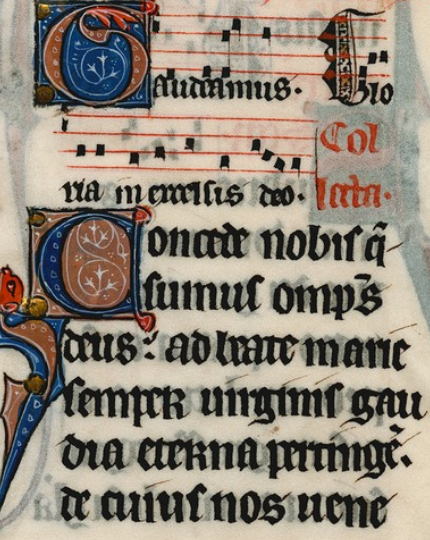 Gaudeamus. Glo
Col
ria in excelsis deo. lecta.
Concede nobis q̄
sumus omp̄s
deus: ad beate marie
semper uirginis gau
dia eterna pertingē.
de cuius nos uene